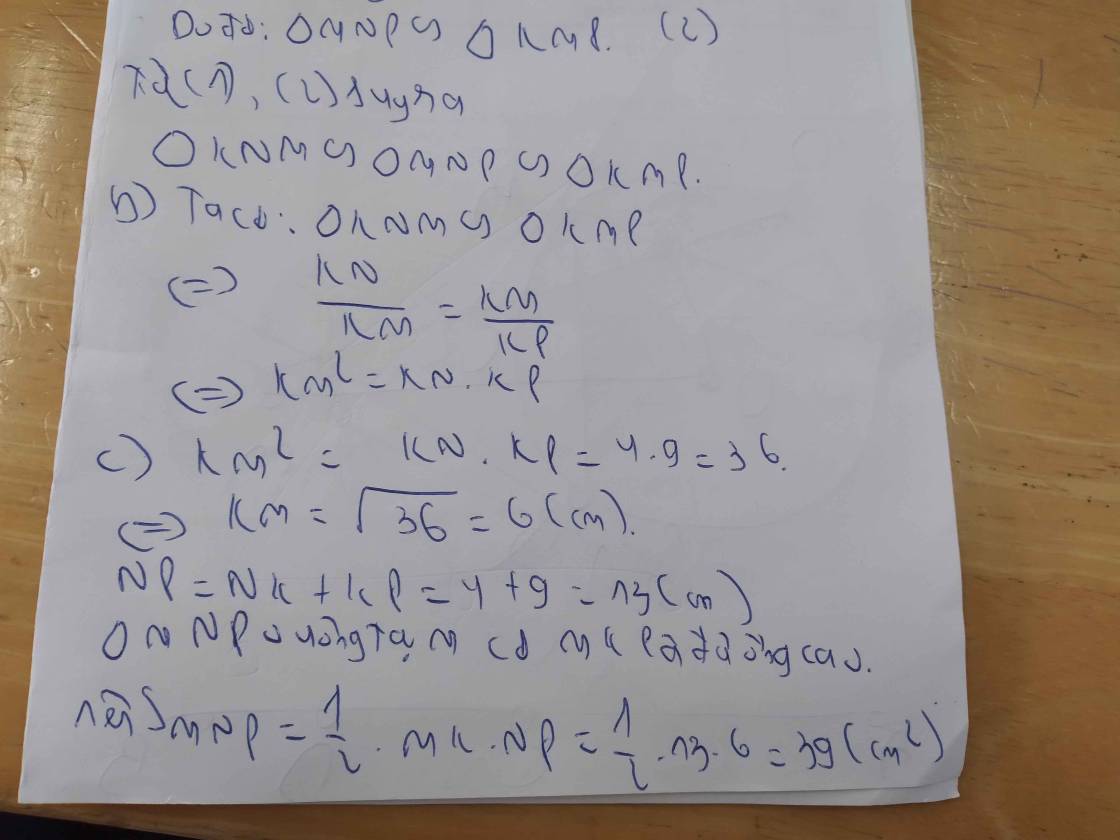 Do đó: ΔMNP ∽ ΔKMP. (2)
Từ (1), (2) suy ra
ΔKNM ∽ ΔMNP ∽ ΔKMP.
b) Ta có: ΔKNM ∽ ΔKMP
<=> KN/KM = KM/KP
<=> KM² = KN.KP
c) KM² = KN.KP = 4.9 = 36.
<=> KM = √36 = 6 (cm).
NP = NK + KP = 4 + 9 = 13 (cm)
ΔMNP vuông tại M có MK là đường cao.
nên SMNP = 1/2 . MK.NP = 1/2 .13.6 = 39 (cm²)